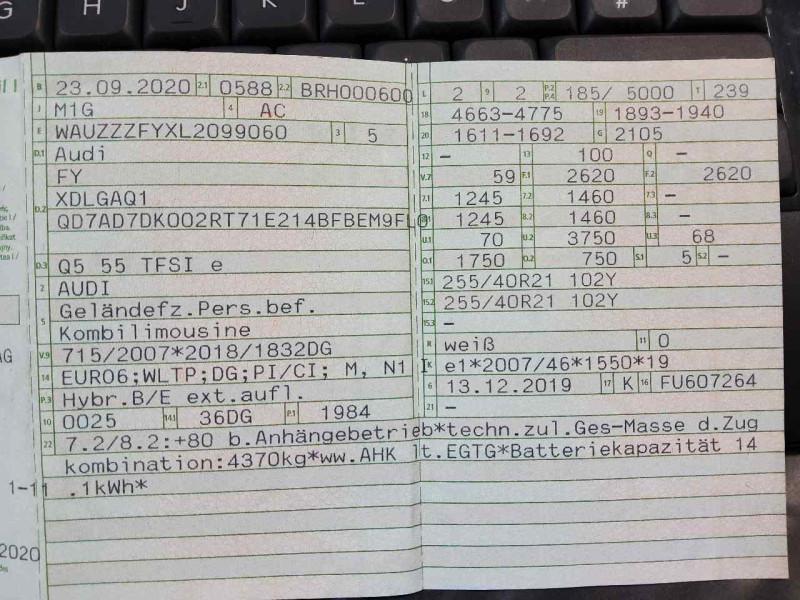 G H J K L #
B 23.09.2020 2.1 0588 2.2 BRH000600
J M1G 4 AC
E WAUZZZFYXL2099060 3 5
D.1 Audi
FY
D.2 XDLGAQ1
QD7AD7DK002RT71E214BFBEM9FL0
D.3 Q5 55 TFSI e
2 AUDI
5 Geländefz.Pers.bef.
Kombilimousine
V.9 715/2007*2018/1832DG
14 EURO6;WLTP;DG;PI/CI; M, N1 I
P.3 Hybr.B/E ext.aufl.
10 0025 14.1 36DG P.1 1984
L 2 9 2 P.2 P.4 185/ 5000 T 239
18 4663-4775 19 1893-1940
20 1611-1692 G 2105
12 - 13 100 Q -
V.7 59 F.1 2620 F.2 2620
7.1 1245 7.2 1460 7.3 -
8.1 1245 8.2 1460 8.3 -
U.1 70 U.2 3750 U.3 68
O.1 1750 O.2 750 S.1 5 S.2 -
15.1 255/40R21 102Y
15.2 255/40R21 102Y
15.3 -
R weiß 11 0
K e1*2007/46*1550*19
6 13.12.2019 17 K 16 FU607264
21 -
22 7.2/8.2:+80 b.Anhängebetrieb*techn.zul.Ges-Masse d.Zug
kombination:4370kg*ww.AHK lt.EGTG*Batteriekapazität 14
.1kWh*
AG
1-11
2020